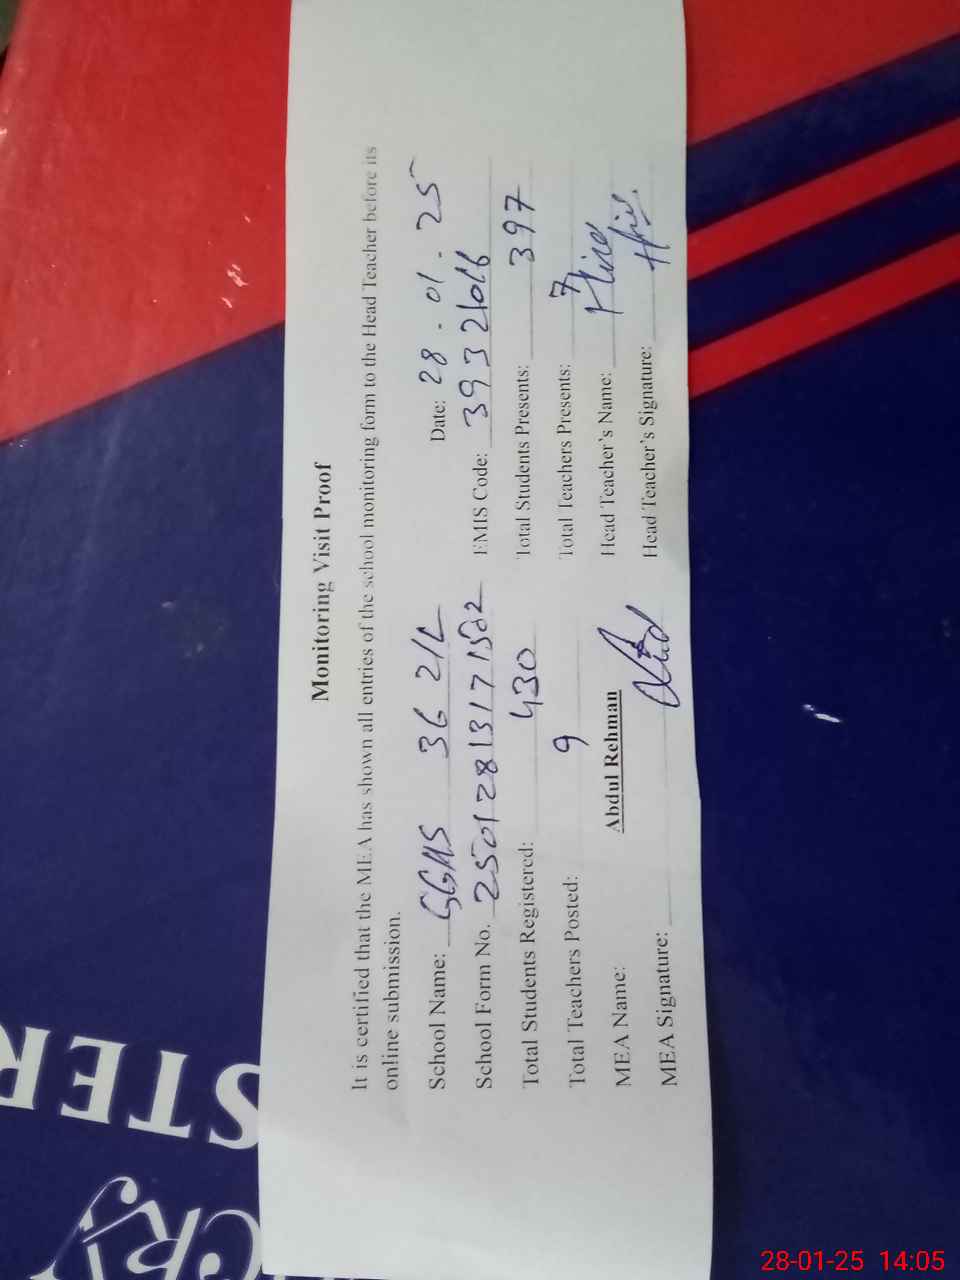 Monitoring Visit Proof
It is certified that the MEA has shown all entries of the school monitoring form to the Head Teacher before its
online submission.
School Name: GGHS 36 2/L Date: 28-01-25
School Form No. 25012813171502 EMIS Code: 39321016
Total Students Registered: 430 Total Students Presents: 397
Total Teachers Posted: 9 Total Teachers Presents: 7
MEA Name: Abdul Rehman Head Teacher's Name:
MEA Signature: Head Teacher's Signature:
STER
CRY
28-01-25 14:05